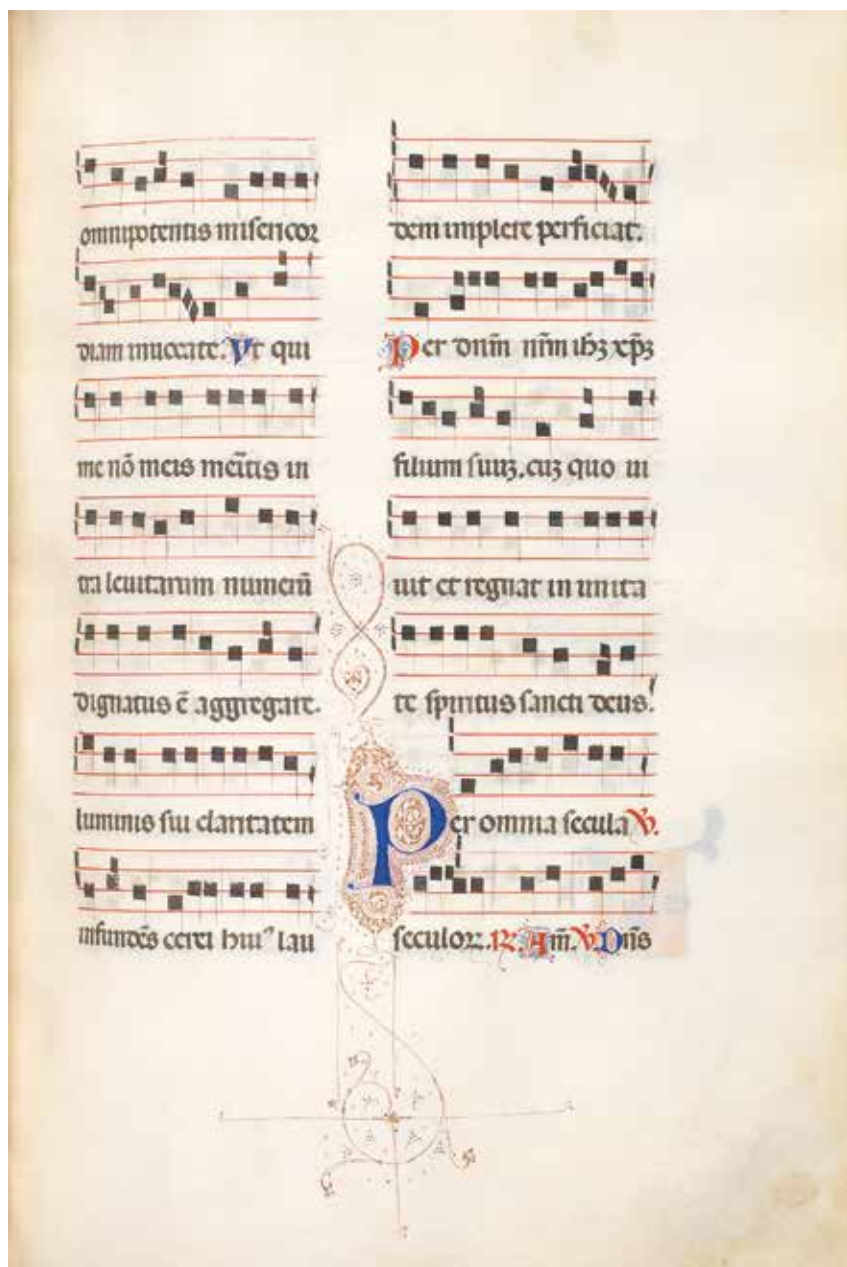 omnipotentis misericor
diam inuocate. Vt qui
me nõ meis mẽitis in
tra leuitarum numerũ
dignatus ẽ aggregare.
luminis sui claritatem
infundẽs cerei huiꝰ lau
dem implere perficiat.
Per dnm̃ nrm̃ ihꝫ xp̃ꝫ
filium suuꝫ. cuꝫ quo ui
uit et regnat in unita
te spiritus sancti deus.
Per omnia secula ℣.
seculoꝝ. ℟. Am̃. ℣. Dñs